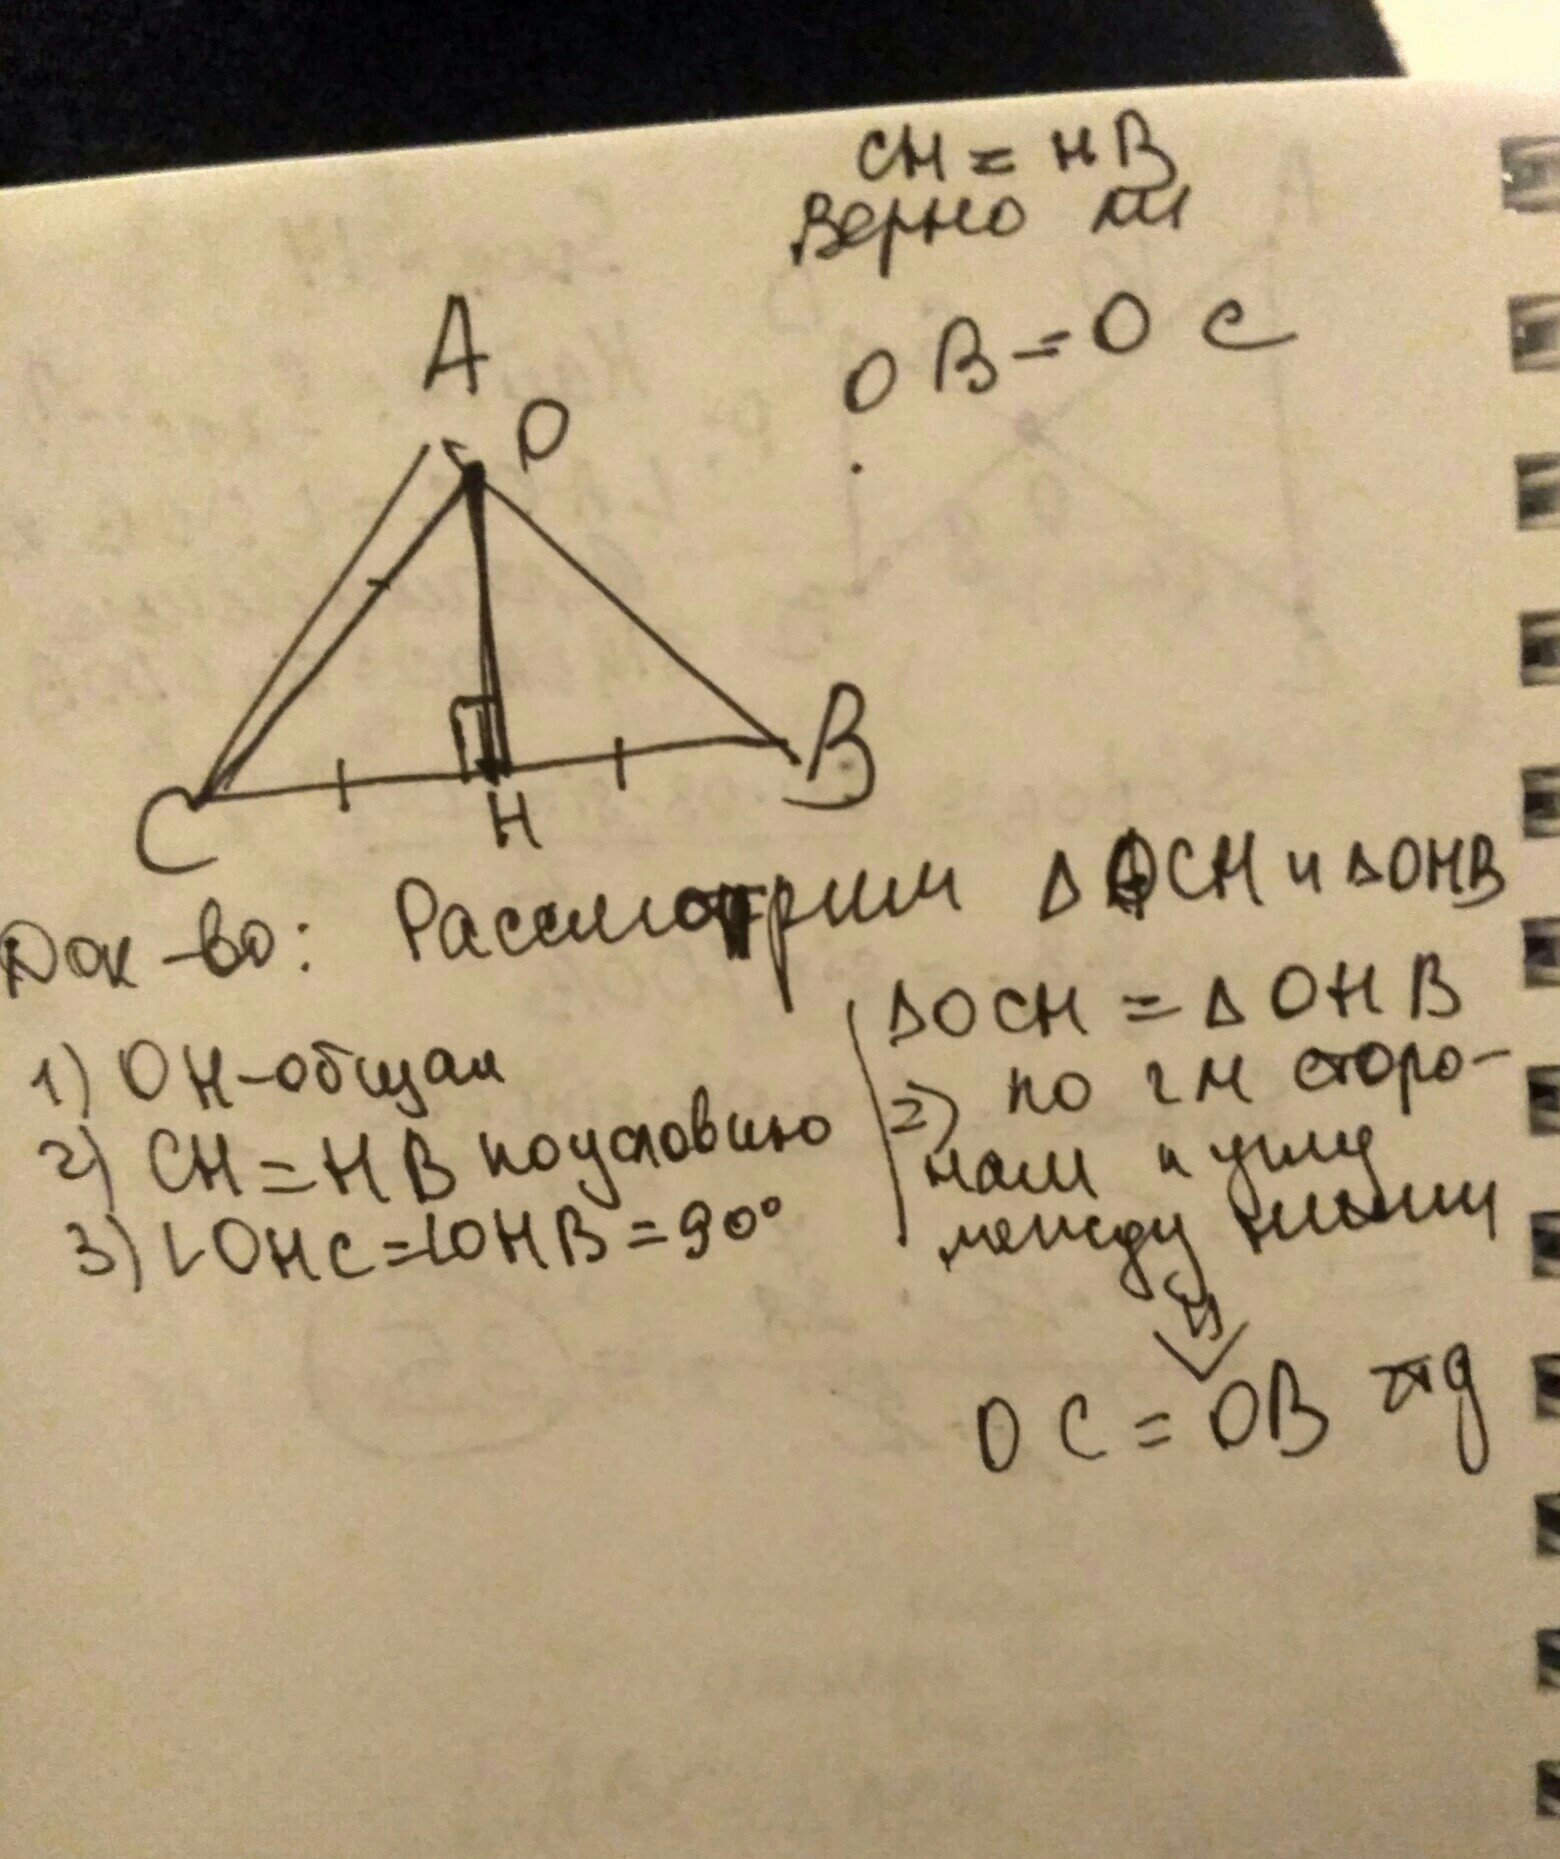 CH = HB
Верно ли
OB = OC
A
O
C
H
B
Док-во: Рассмотрим Δ OCH и Δ OHB
1) OH - общая
2) CH = HB по условию
3) ∠OHC = ∠OHB = 90°
ΔOCH = Δ OHB
=> по 2м сторо-
нам и углу
между ними
⇓
OC = OB чтд